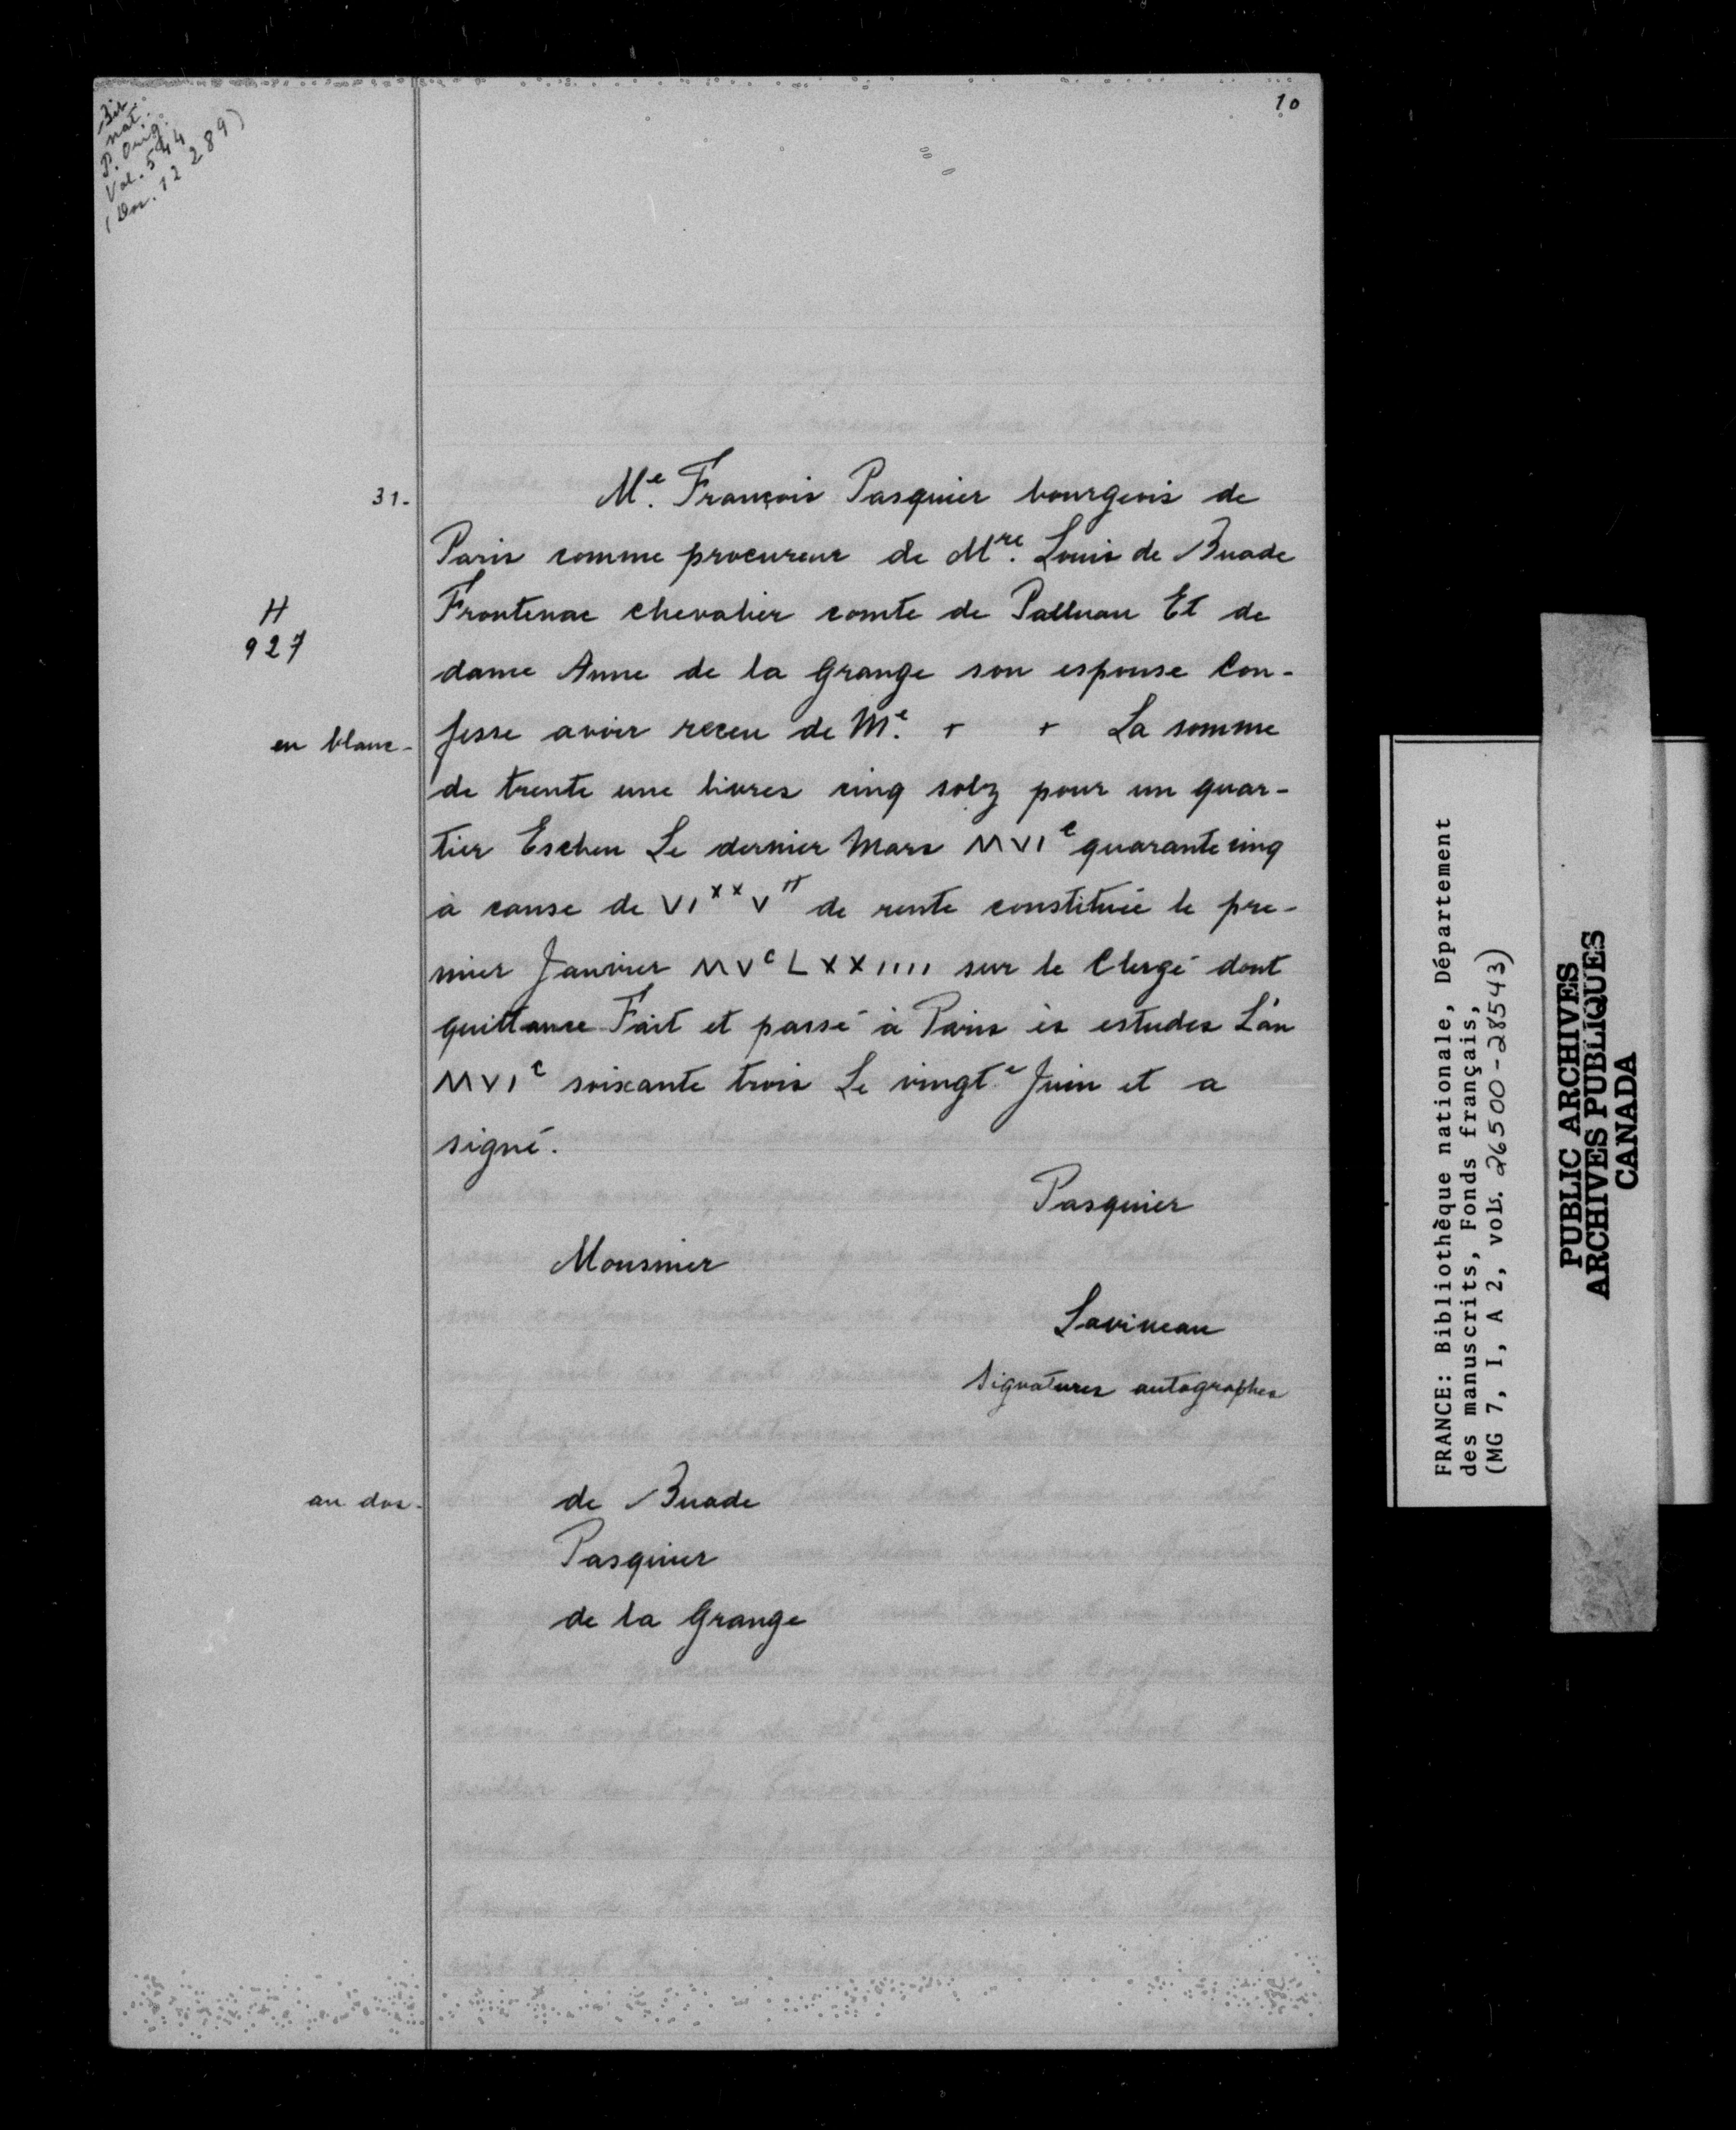 10
Bib.
nat.
P. Orig.
Vol. 544
(Dos. 12 289)
31.
Me. François Pasquier bourgeois de
Paris comme procureur de Mre. Louis de Buade
H
927
Frontenac chevalier comte de Palluau Et de
dame Anne de la Grange son espouse Con-
en blanc-
fesse avoir receu de Me. + + La somme
de trente une livres cinq solz pour un quar-
tier Escheu Le dernier Mars MVIc quarante cinq
à cause de VIxxVtt de rente constituée le pre-
mier Janvier MVcLXXIIII sur le Clergé dont
quittance Fait et passé à Paris ès estudes L'an
MVIc soixante trois Le vingte Juin et a
signé.
Pasquier
Mousnier
Lavineau
Signatures autographes
au dos-
de Buade
Pasquier
de la Grange
FRANCE: Bibliothèque nationale, Département
des manuscrits, Fonds français,
(MG 7, I, A 2, vols. 26500-28543)
PUBLIC ARCHIVES
ARCHIVES PUBLIQUES
CANADA